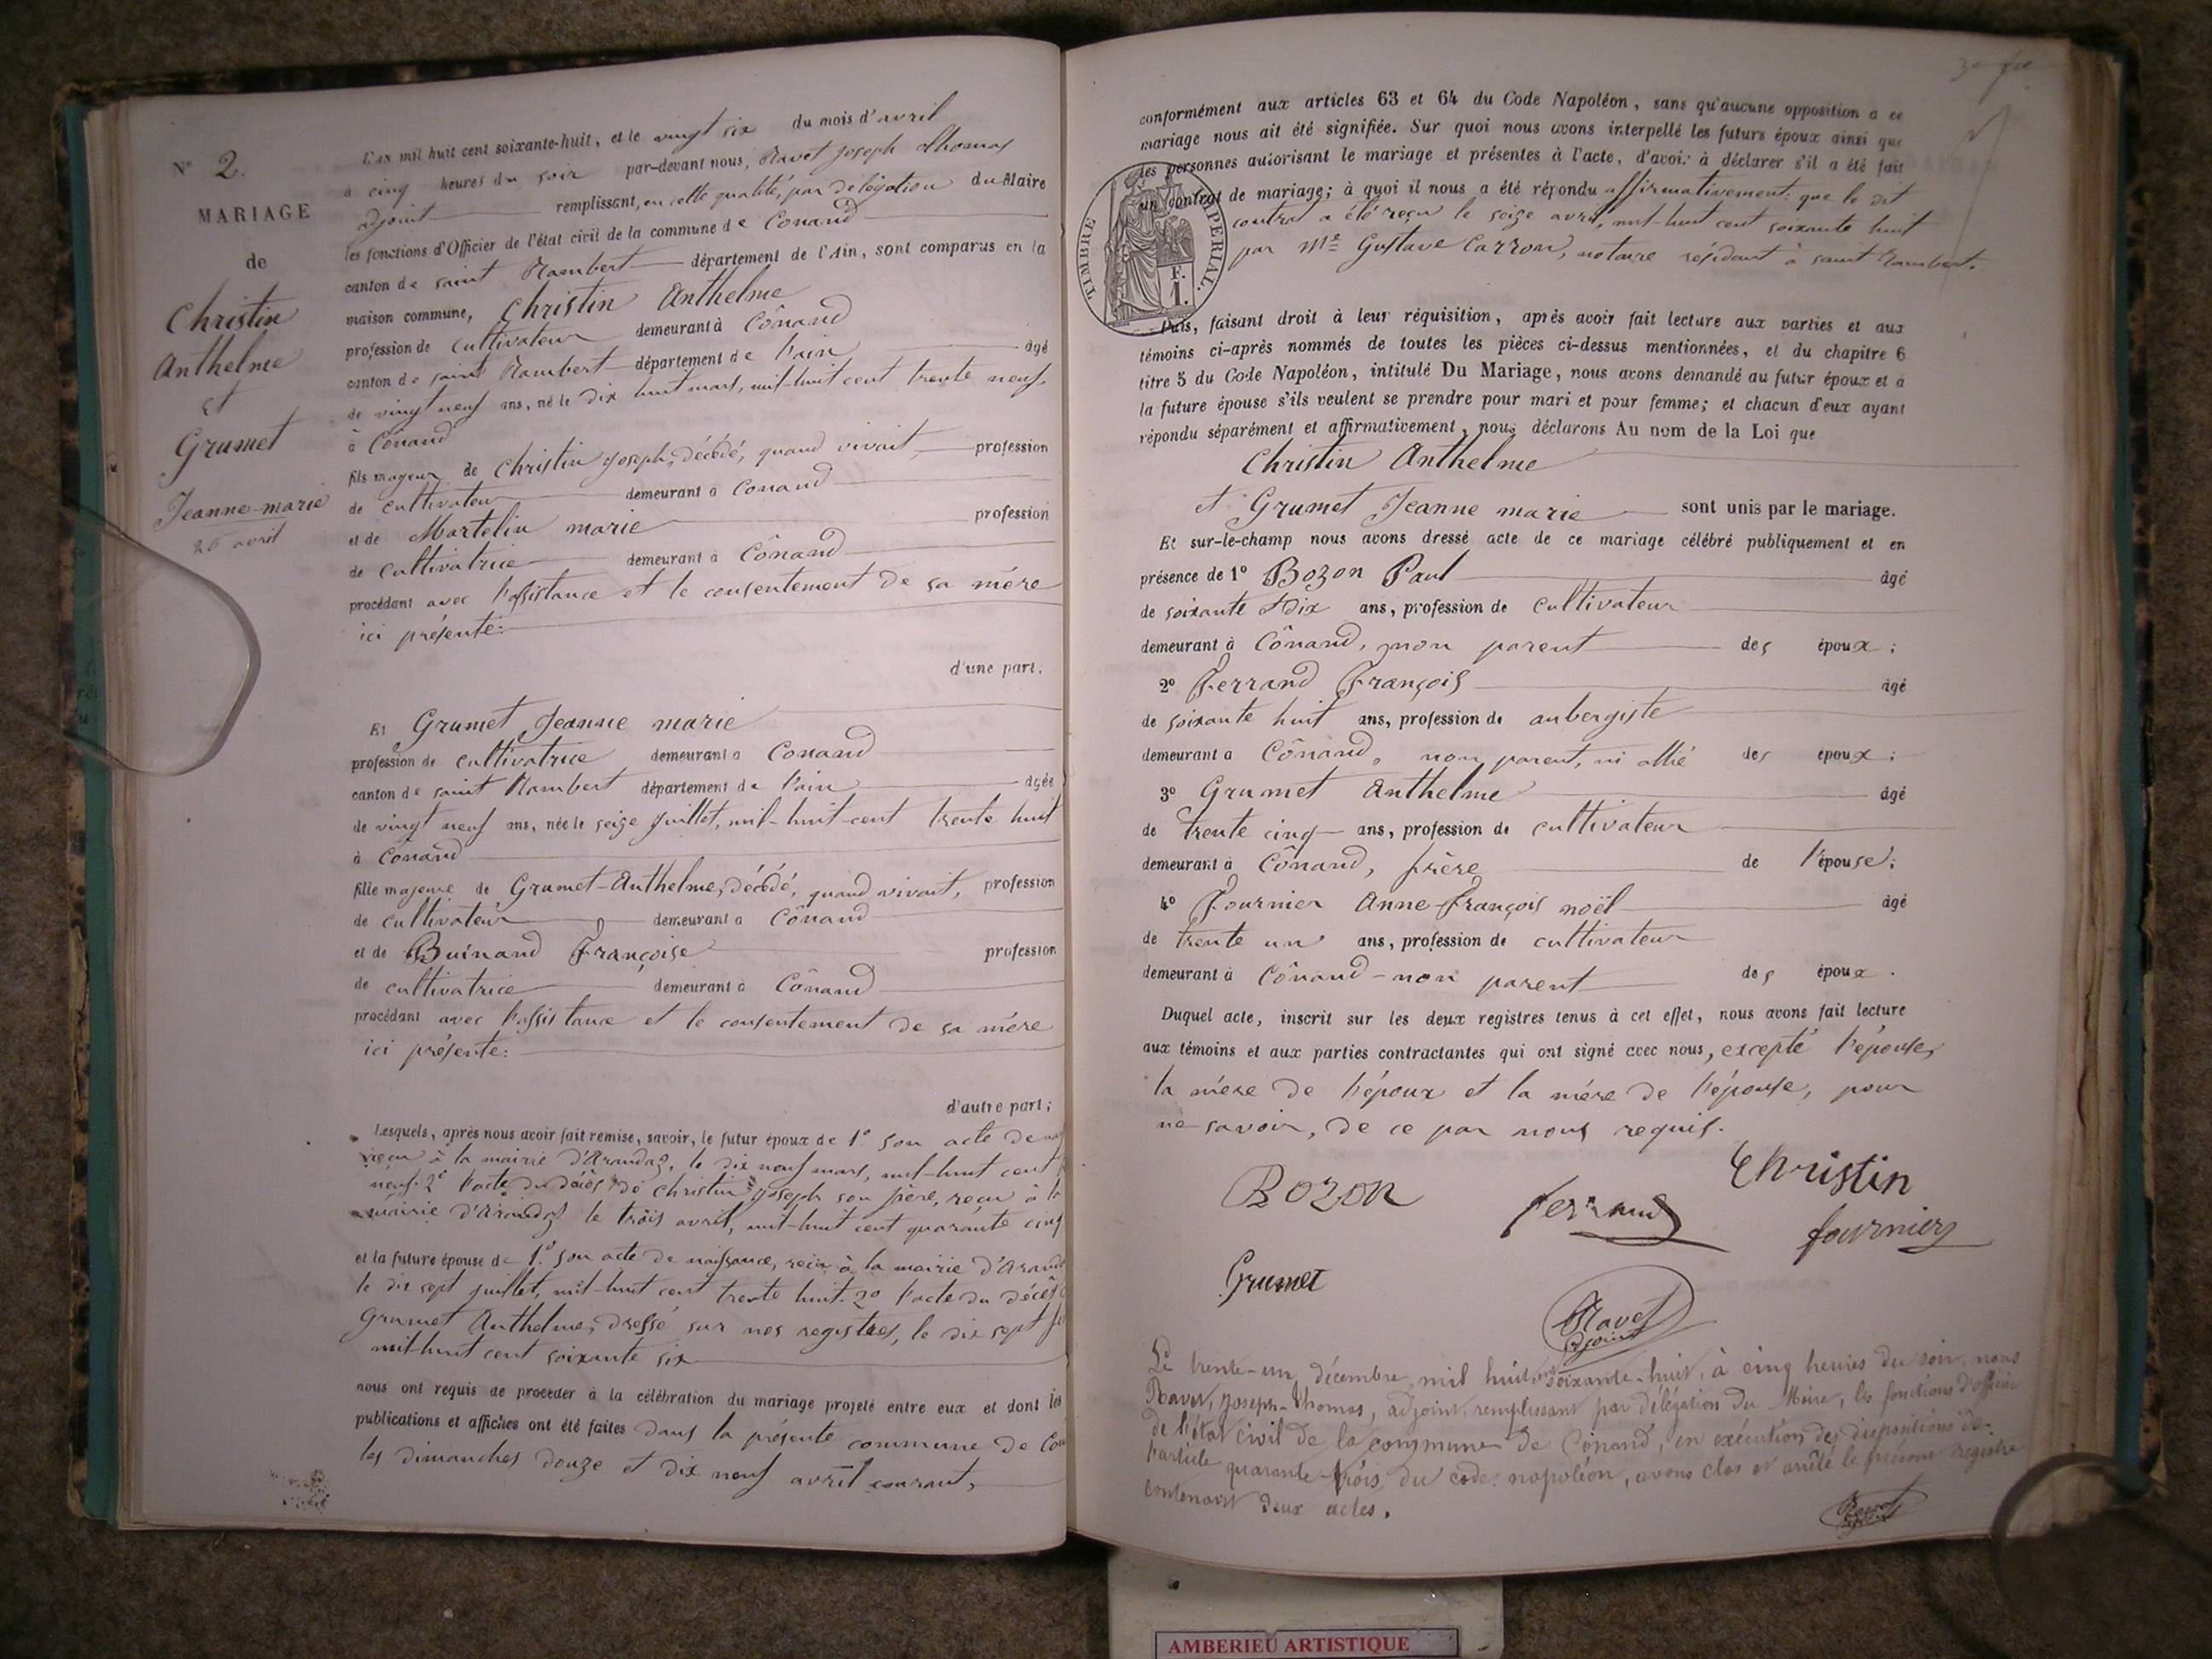 N° 2.
MARIAGE
de
Christin
Anthelme
et
Grumet
Jeanne-marie
26 avril
L'an mil huit cent soixante-huit, et le vingt six du mois d'avril
à cinq heures du soir par-devant nous, Ravet Joseph Thomas
adjoint remplissant, en cette qualité, par délégation du Maire
les fonctions d'Officier de l'état civil de la commune de Conand
canton de saint Rambert département de l'Ain, sont comparus en la
maison commune, Christin Anthelme
profession de cultivateur demeurant à Cônand
canton de saint Rambert département de l'ain âgé
de vingt neuf ans, né le dix huit mars, mil-huit cent trente neuf
à Cônand
fils majeur de Christin Joseph, décédé, quand vivait, profession
de cultivateur demeurant à Conand
et de Martelin marie profession
de cultivatrice demeurant à Cônand
procédant avec l'assistance et le consentement de sa mère
ici présente:
d'une part.
Et Grumet Jeanne marie
profession de cultivatrice demeurant à Conand
canton de saint Rambert département de l'ain âgée
de vingt neuf ans, née le seize juillet, mil-huit-cent trente huit
à Conand
fille majeure de Grumet-Anthelme, décédé, quand vivait, profession
de cultivateur demeurant à Cônand
et de Buinand Françoise profession
de cultivatrice demeurant à Cônand
procédant avec l'assistance et le consentement de sa mère
ici présente:
d'autre part;
Lesquels, après nous avoir fait remise, savoir, le futur époux de 1° son acte de
reçu à la mairie d'Arandas, le dix neuf mars, mil-huit cent
neuf. 2° l'acte du décès de Christin Joseph son père, reçu à la
mairie d'Arandas le trois avril, mil-huit cent quarante cinq
et la future épouse de 1° son acte de naissance, reçu à la mairie d'Arand
le dix sept juillet, mil-huit cent trente huit. 2° l'acte du décès
Grumet Anthelme, dressé sur nos registres, le dix sept
mil-huit cent soixante six
nous ont requis de procéder à la célébration du mariage projeté entre eux et dont les
publications et affiches ont été faites dans la présente commune de Con
les dimanches douze et dix neuf avril courant,
conformément aux articles 63 et 64 du Code Napoléon, sans qu'aucune opposition à ce
mariage nous ait été signifiée. Sur quoi nous avons interpellé les futurs époux ainsi que
les personnes autorisant le mariage et présentes à l'acte, d'avoir à déclarer s'il a été fait
un contrat de mariage; à quoi il nous a été répondu affirmativement: que le dit
contrat a été reçu le seize avril, mil-huit cent soixante huit
par Me Gustave Carron, notaire résidant à saint Rambert.
TIMBRE IMPERIAL
F.
1.
Puis, faisant droit à leur réquisition, après avoir fait lecture aux parties et aux
témoins ci-après nommés de toutes les pièces ci-dessus mentionnées, et du chapitre 6
titre 5 du Code Napoléon, intitulé Du Mariage, nous avons demandé au futur époux et à
la future épouse s'ils veulent se prendre pour mari et pour femme; et chacun d'eux ayant
répondu séparément et affirmativement, nous déclarons Au nom de la Loi que
Christin Anthelme
et Grumet Jeanne marie sont unis par le mariage.
Et sur-le-champ nous avons dressé acte de ce mariage célébré publiquement et en
présence de 1° Bozon Paul âgé
de soixante et dix ans, profession de cultivateur
demeurant à Cônand, non parent des époux;
2° Ferrand François âgé
de soixante huit ans, profession de aubergiste
demeurant à Cônand, non parent, ni allié des époux;
3° Grumet Anthelme âgé
de trente cinq ans, profession de cultivateur
demeurant à Cônand, frère de l'épouse;
4° Fournier Anne-François noël âgé
de trente un ans, profession de cultivateur
demeurant à Cônand - non parent des époux.
Duquel acte, inscrit sur les deux registres tenus à cet effet, nous avons fait lecture
aux témoins et aux parties contractantes qui ont signé avec nous, excepté l'épouse,
la mère de l'époux et la mére de l'épouse, pour
ne savoir, de ce par nous requis.
Christin
BOZON ferrand fournier
Grumet
Ravet
adjoint
Le trente-un décembre mil huit cent soixante-huit, à cinq heures du soir, nous
Ravet, Joseph-Thomas, adjoint, remplissant par délégation du Maire, les fonctions d'officier
de l'état civil de la commune de Conand, en exécution des dispositions de
l'article quarante-trois du code napoléon, avons clos et arrêté le présent registre
contenant deux actes.
Ravet
AMBERIEU ARTISTIQUE